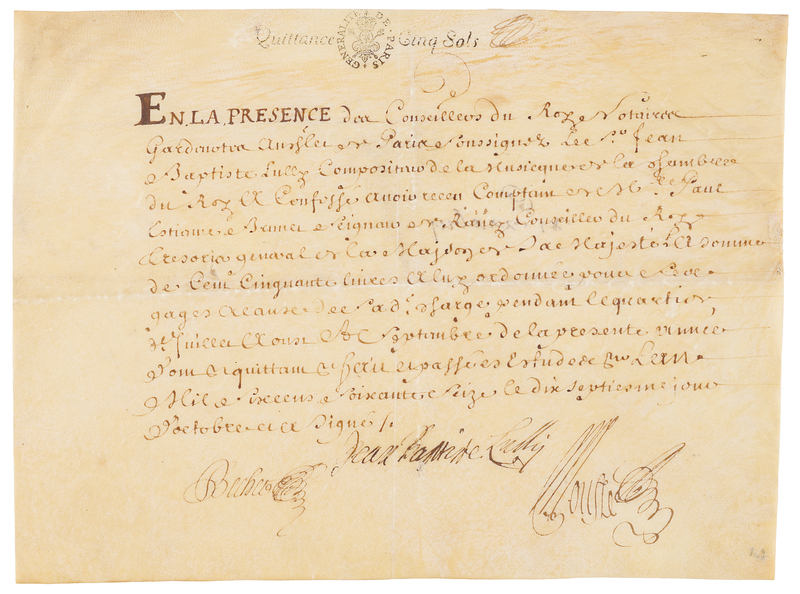 Quittance Cinq Sols
GENERALITE DE PARIS
EN LA PRESENCE des Conseillers du Roy Notaires
Gardenottes au Chlet de Paris soussignez Le Sr Jean
Baptiste Lully Compositeur de la Musicque de la Chambre
du Roy A Confessé avoir receu Comptant de Paul
seigneur de Conseiller du Roy
Tresorier general de la Maison de Sa Majesté La somme
de Cent Cinquante livres A luy ordonnée pour ses
gages a cause de sad. charge pendant le quartier
de Juillet Aoust & Septembre de la presente année
Dont quittant & fait et passé es Estudes Lan
Mil six cens soixante seize le dix septiesme jour
d'octobre et a signé /.
Jean Baptiste Lully